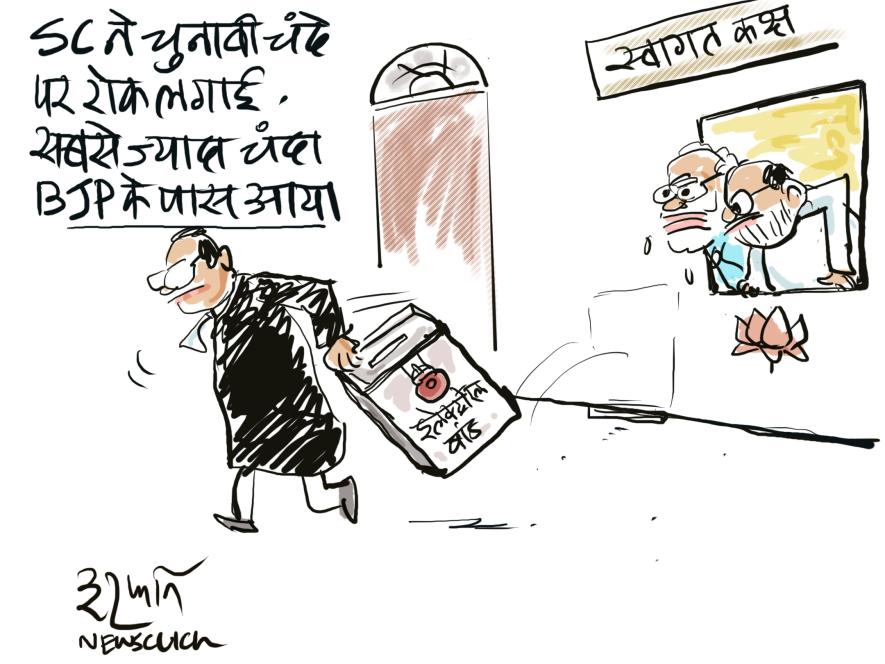 SC ने चुनावी चंदे
पर रोक लगाई.
सबसे ज्यादा चंदा
BJP के पास आया
स्वागत कक्ष
इलेक्टोरल
बांड
इरफान
NEWSCLICK